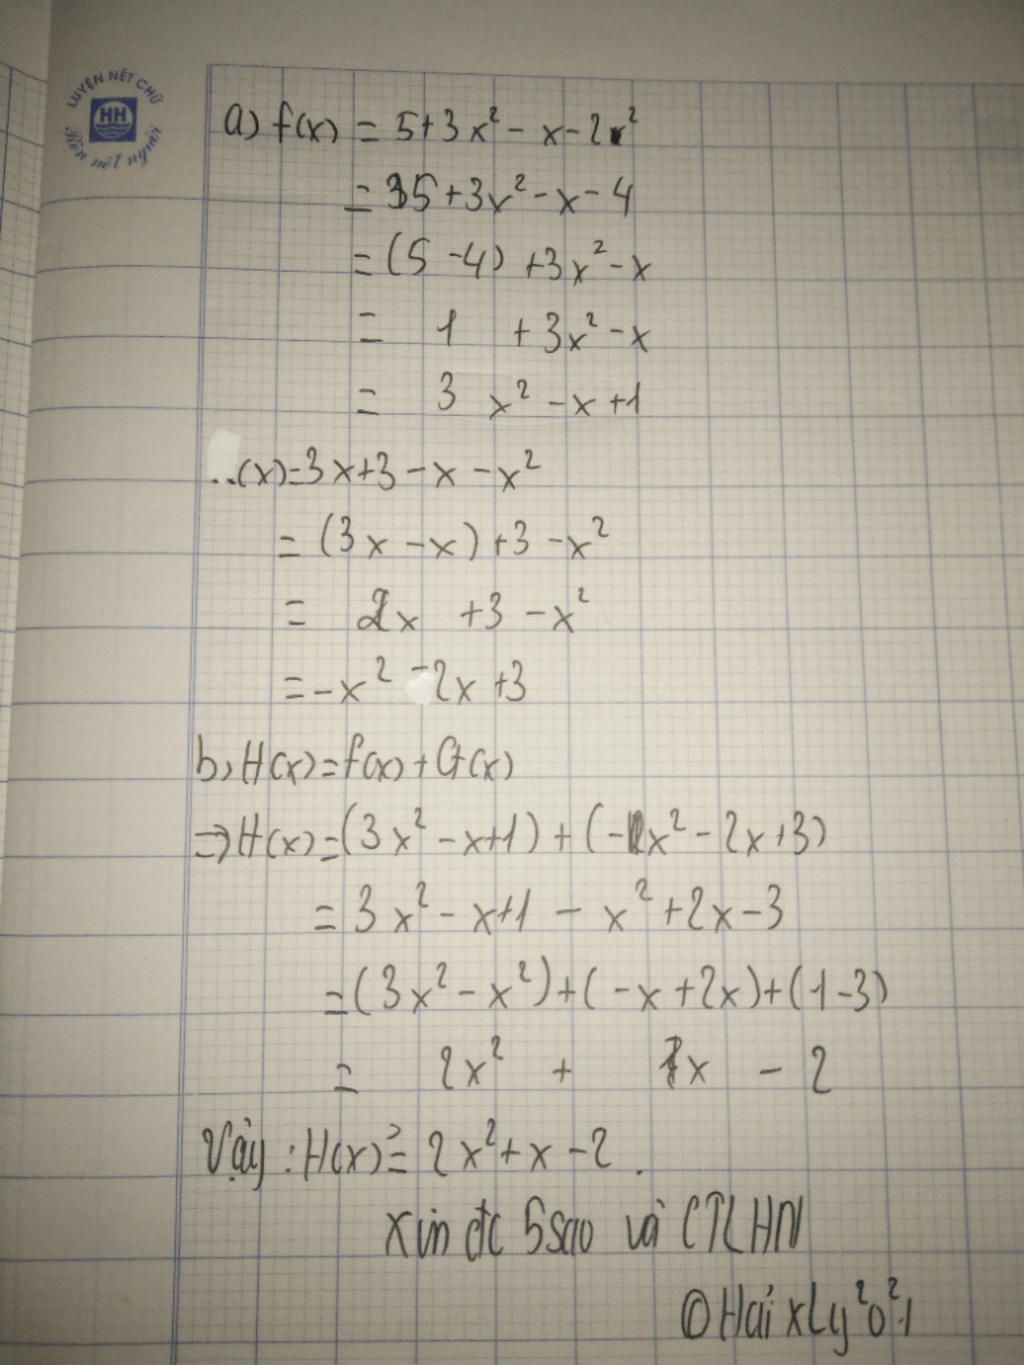 LUYỆN NÉT CHỮ
HH
Rèn nết người
a) f(x) = 5+3x² - x - 2x²
= 35+3x² - x - 4
= (5 - 4) + 3x² - x
= 1 + 3x² - x
= 3 x² - x + 1
(x) = 3x+3 - x - x²
= (3x - x) + 3 - x²
= 2x + 3 - x²
= -x² - 2x + 3
b, H(x) = f(x) + G(x)
⇒ H(x) = (3x² - x+1) + (- x² - 2x+3)
= 3x² - x+1 - x² + 2x - 3
= (3x² - x²) + (-x + 2x) + (1 - 3)
= 2x² + 1x - 2
Vậy : H(x) = 2x² + x - 2 .
Xin đc 5 sao và CTLHN